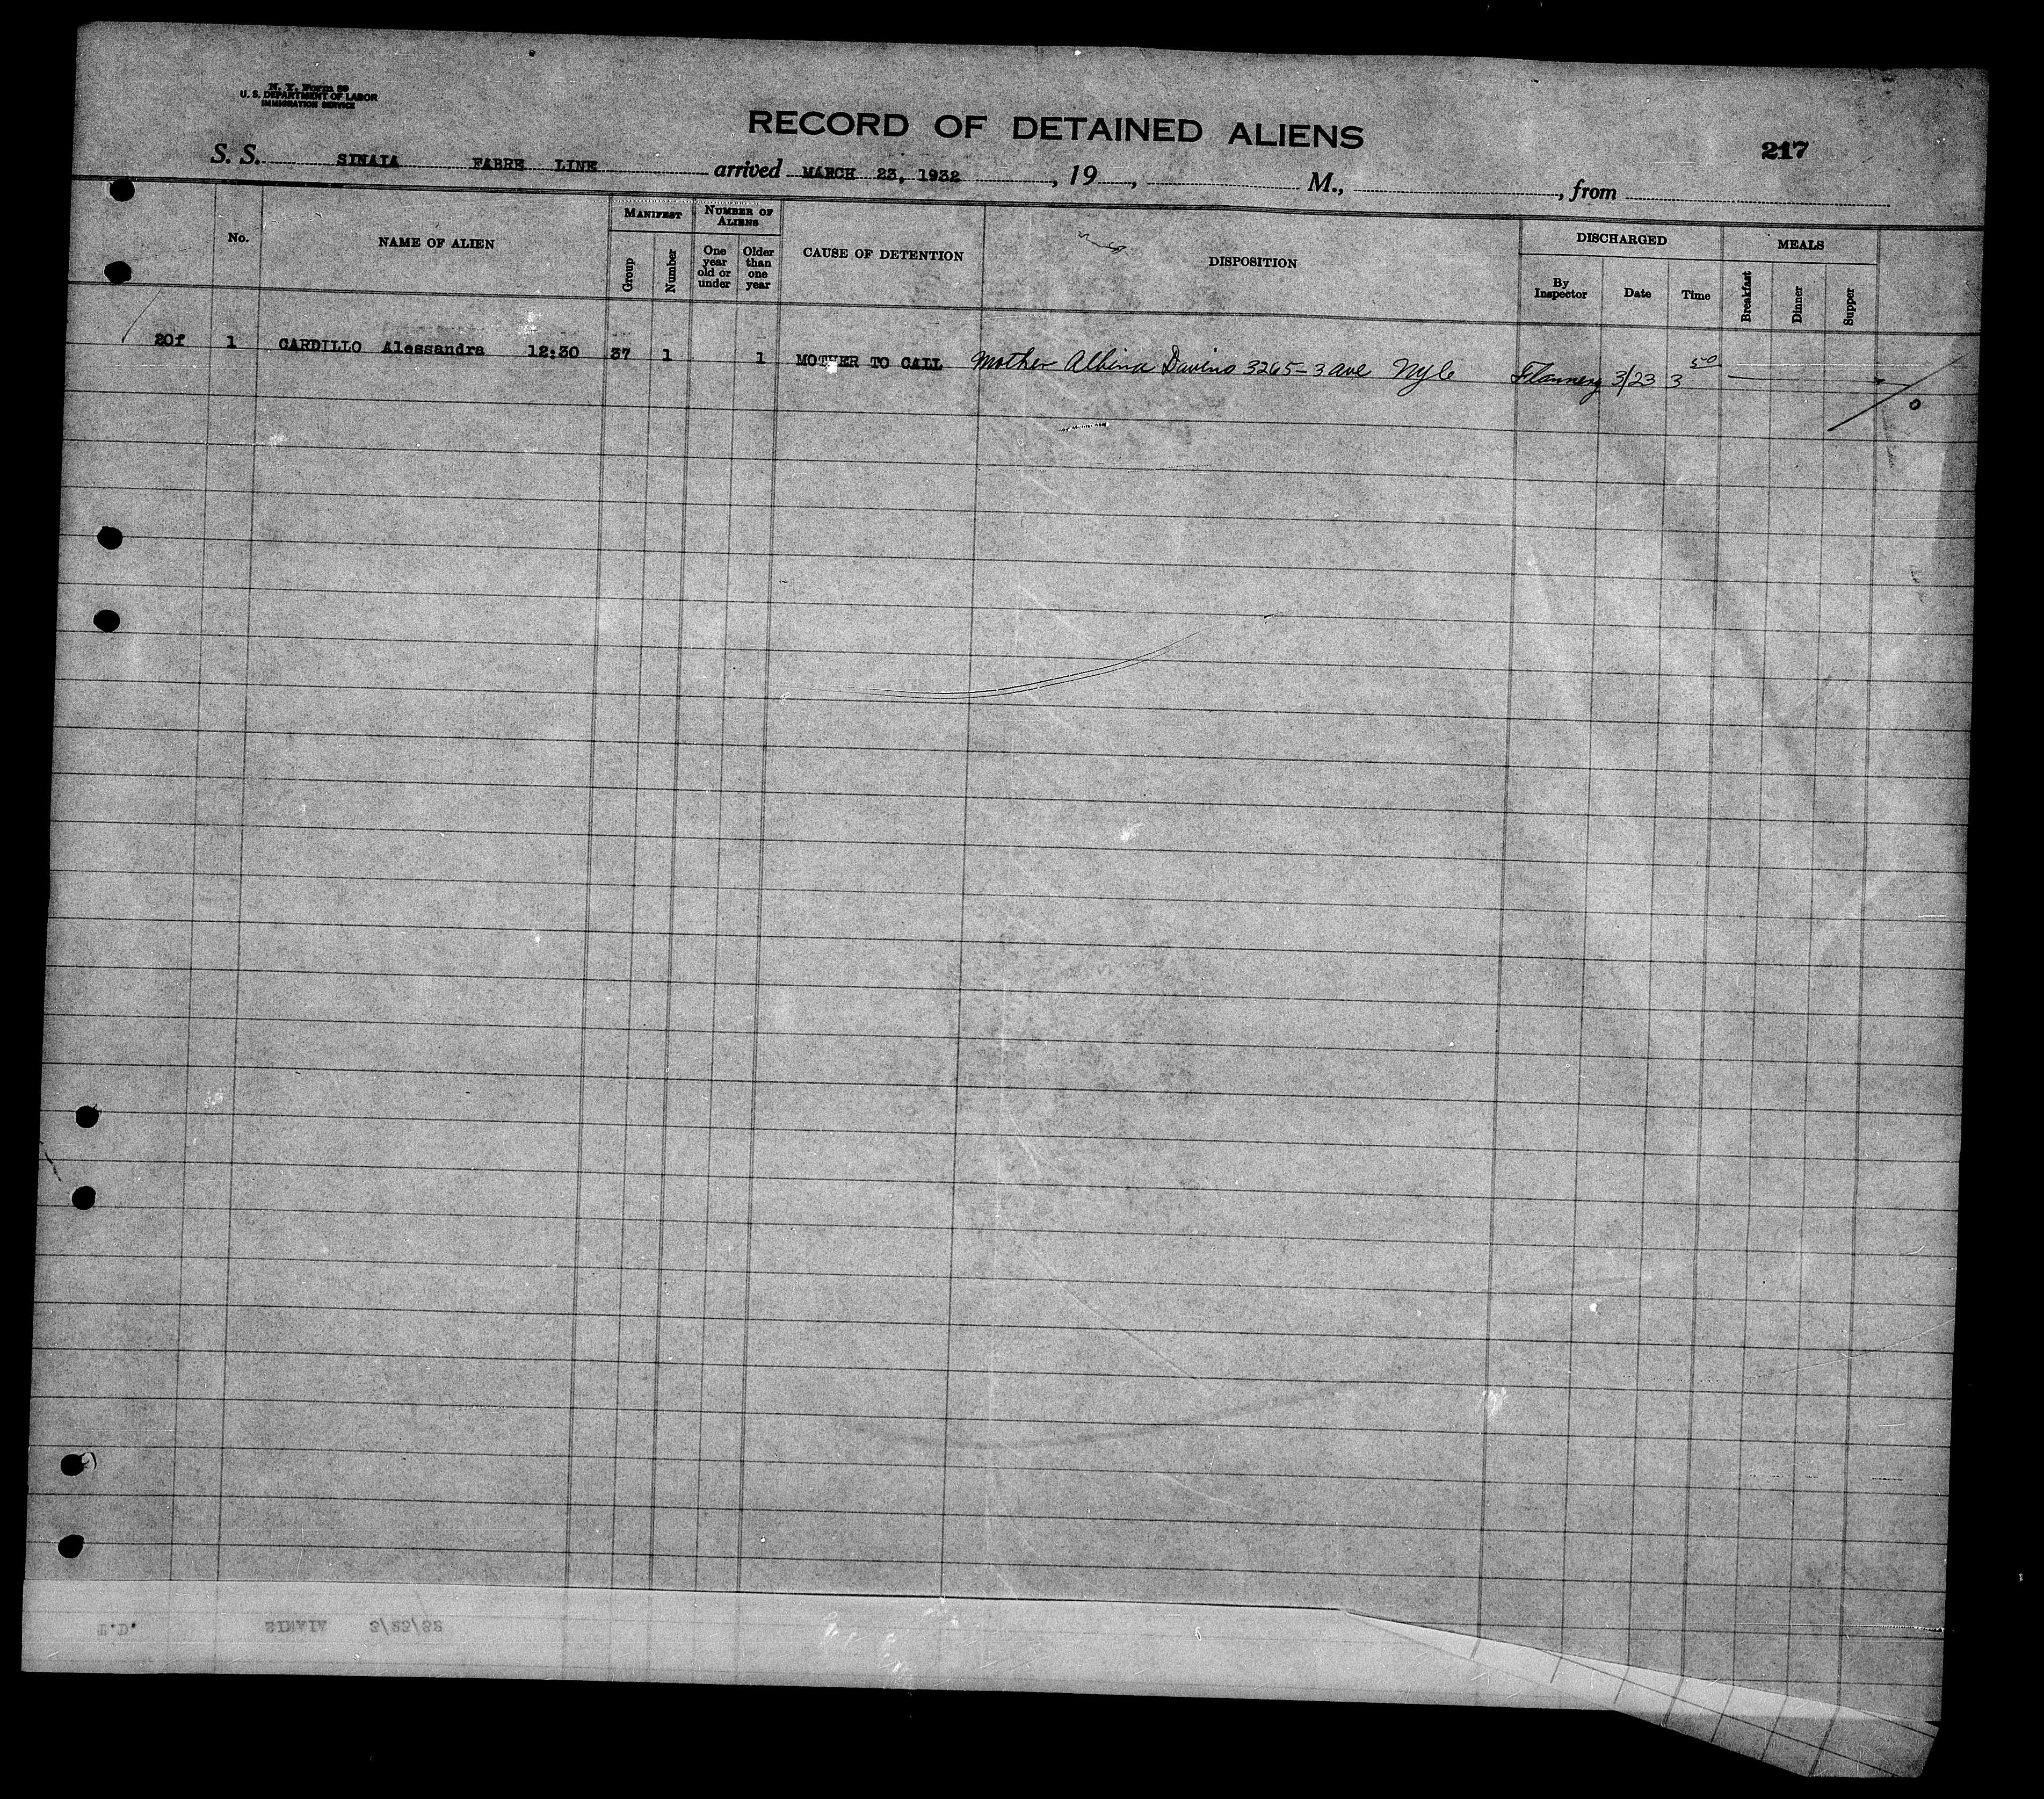 N. Y. Form 99
U. S. DEPARTMENT OF LABOR
IMMIGRATION SERVICE
RECORD OF DETAINED ALIENS
217
S. S. SINAIA FABRE LINE arrived MARCH 23, 1932, 19, M., from
No.
NAME OF ALIEN
MANIFEST
Group
Number
NUMBER OF ALIENS
One year old or under
Older than one year
CAUSE OF DETENTION
DISPOSITION
DISCHARGED
By Inspector
Date
Time
MEALS
Breakfast
Dinner
Supper
20f 1 CARDILLO Alessandra 12:30 37 1 1 MOTHER TO CALL Mother Albina Davino 3265-3 ave NYC Flannery 3/23 3 50
0
SINAIA 3/23/32